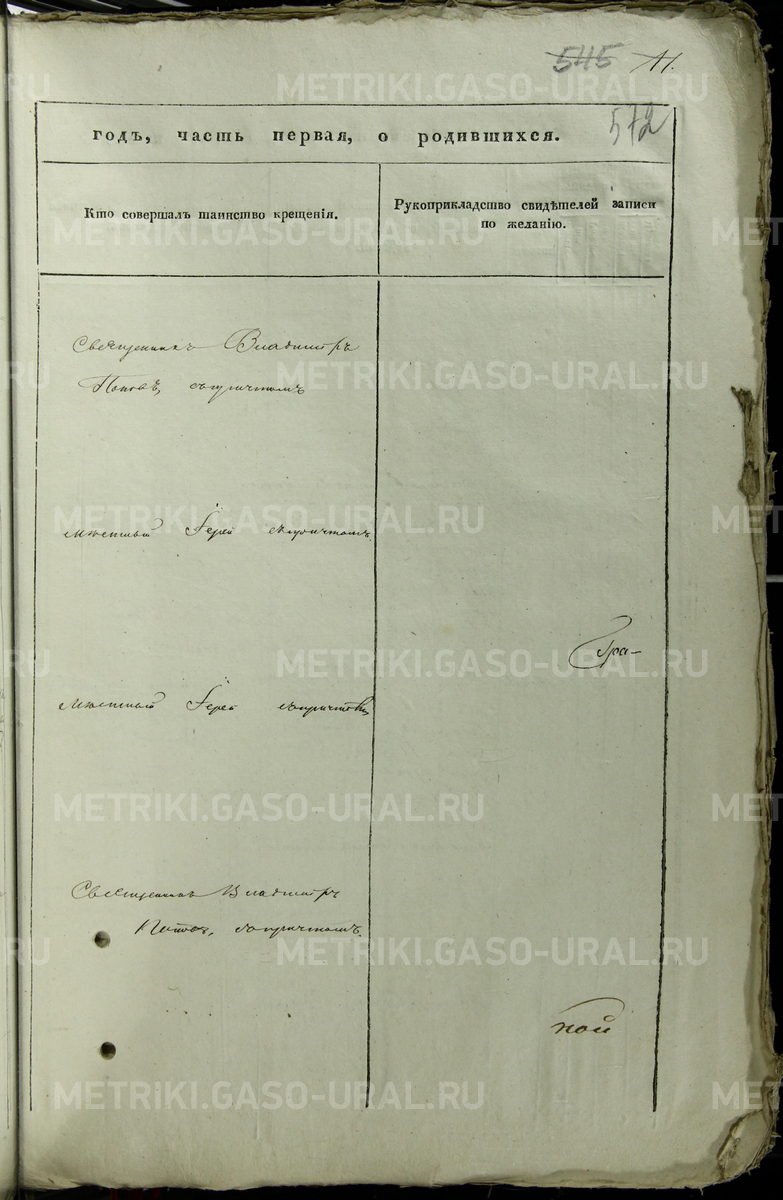 545 11.
572
годъ, часть первая, о родившихся.
Кто совершалъ таинство крещенія.
Рукоприкладство свидѣтелей записи
по желанію.
Священникъ Владиміръ
Поповъ, съ причтомъ
Мѣстный Іерей съ причтомъ
Бра-
Мѣстный Іерей съ причтомъ
Священникъ Владиміръ
Поповъ, съ причтомъ.
ной
METRIKI.GASO-URAL.RU